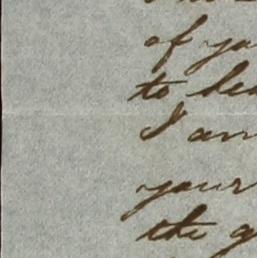 of yo
to hea
I am
your
the g